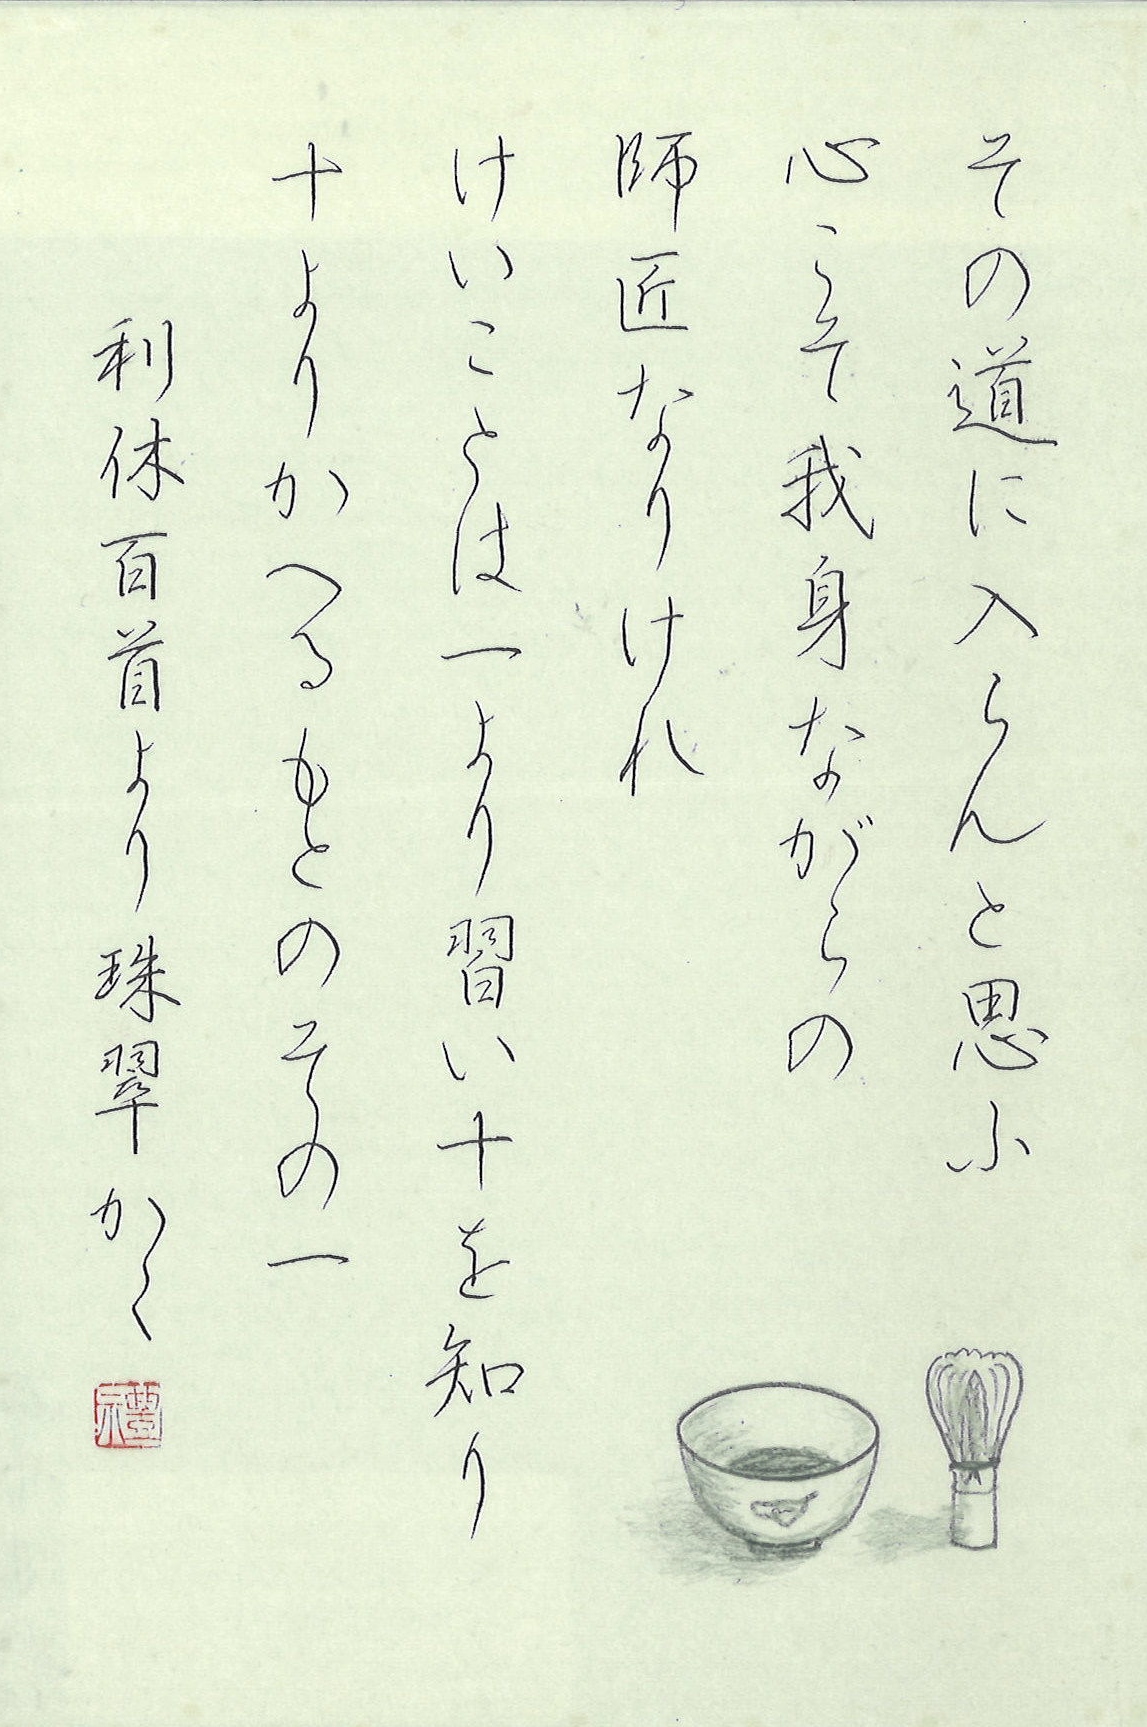 その道に入らんと思ふ
心こそ我身ながらの
師匠なりけれ
けいことは一より習い十を知り
十よりかへるもとのその一
利休百首より珠翠かく